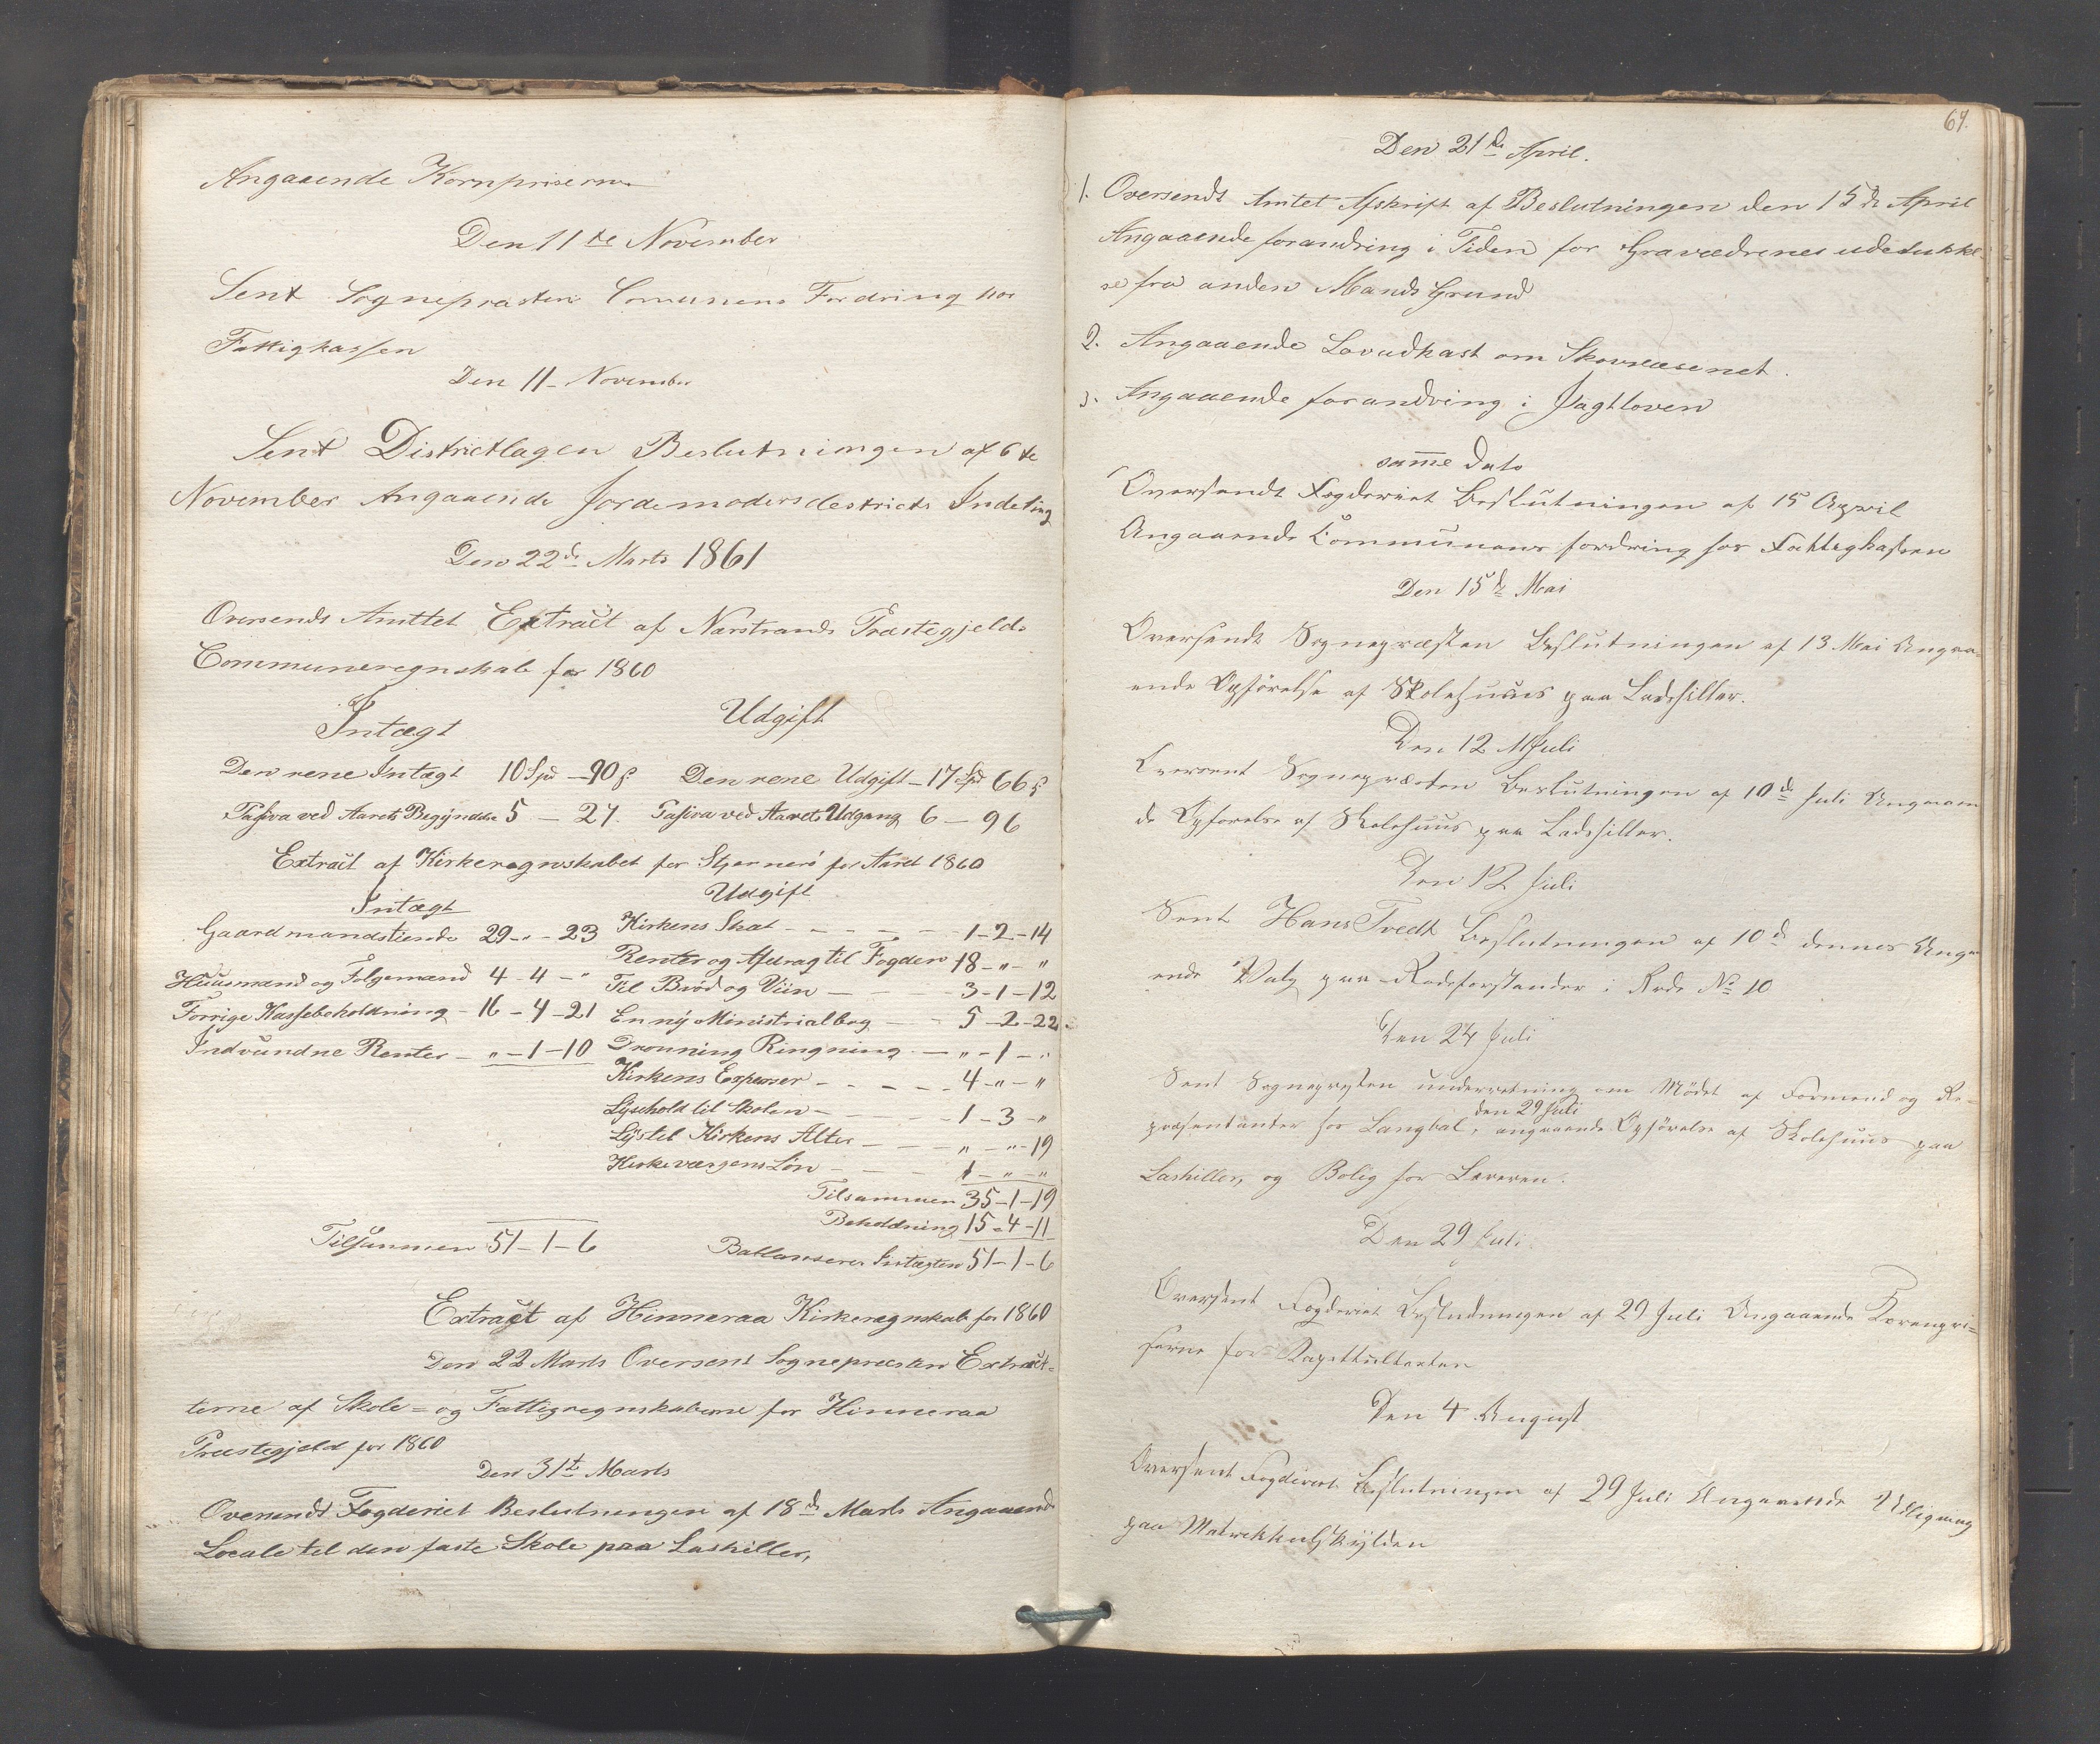 Angaaende Kornpriserne
Den 11te November
Sent Sognepræsten Comunens Fordring hos
Fattigkassen
Den 11- November
Sent Districtlagen Beslutningen af 6te
November Angaaende Jordemodersdestricts Indeling
Den 22de Marts 1861
Oversends Amttet Extract af Narstrands Præstegjelds
Communeregnskab for 1860
Intægt Udgift
Den rene Intægt 10 Spd - 90 ß Den rene Udgift - 17 Spd 66 ß
Pasiva ved Aarets Begyndelse 5 - 27. Pasiva ved Aarets Udgang 6 - 96
Extract af Kirkeregnskabet for Stjernerö for Aaret 1860
Intægt Udgift
Gaardmandstiende 29 - " - 23 Kirkens Skat - - - - 1 - 2 - 14
Renter og Afdrag til Fogden 18 - " - "
Huusmænd og Folgemænd 4 - 4 - " Til Bröd og Viin - - - 3 - 1 - 12
Forrige Kassebeholdning - 16 - 4 - 21 En ny Ministrialbog - - 5 - 2 - 22
Indvundne Renter - " - 1 - 10 Dronning Ringning - " - 1 - "
Kirkens Expenser - - - - 4 - " - "
Lysehold til Skolen - - - - 1 - 3 - "
Lys til Kirkens Alter - - - " - " - 19
Kirkeværgens Lön - - - 1 - " - "
Tilsammen 35 - 1 - 19
Beholdning 15 - 4 - 11
Tilsammen 51 - 1 - 6 Ballanserer Intægten 51 - 1 - 6
Extract af Hinneraa Kirkeregnskab for 1860
Den 22 Marts Oversent Sognepræsten Extract-
terne af Skole = og Fattigregnskaberne for Hinneraa
Præstegjeld for 1860
Den 31te Marts
Oversendt Fogderiet Beslutningen af 18de Marts Angaaende
Locale til den faste Skole paa Laskiller,
69.
Den 21de April.
1. Oversendt Amtet Afskrift af Beslutningen den 15de April
Angaaende forandring i Tiden for Gravædrenes udelukkel-
se fra anden Mands Grund
2. Angaaende Lovudkast om Skovvæsenet.
3. Angaaende forandring i Jagtloven
samme Dato
Oversendt Fogderiet Beslutningen af 15 April
Angaaende Communens fordring hos Fattigkassen
Den 15de Mai
Oversendt Sognepræsten Beslutningen af 13 Mai Angaa-
ende Opförelse af Skolehuus paa Ladshiller.
Den 12 Juli
Oversent Sognepræsten Beslutningen af 10de Juli Angaaen
de Opförelse af Skolehuus paa Ladshiller.
Den 12 Juli
Sent Hans Tvedt Beslutningen af 10de dennes Anga
ende Valg paa Rodeforstander i Rode No 10
Den 24 Juli
Sent Sognepresten underretning om Mödet af Formend og Re-
den 29 Juli
præsentanter hos Langbal, angaaende Opförelse af Skolehuus paa
Lashiller, og Bolig for Læreren.
Den 29 Juli
Oversent Fogderiet Beslutningen af 29 Juli Angaaende Korenpri-
serne for Kapittultaxten
Den 4 August
Oversent Fogderiet Beslutningen af 29 Juli Angaaende Udligning
paa Matrikkulskylden